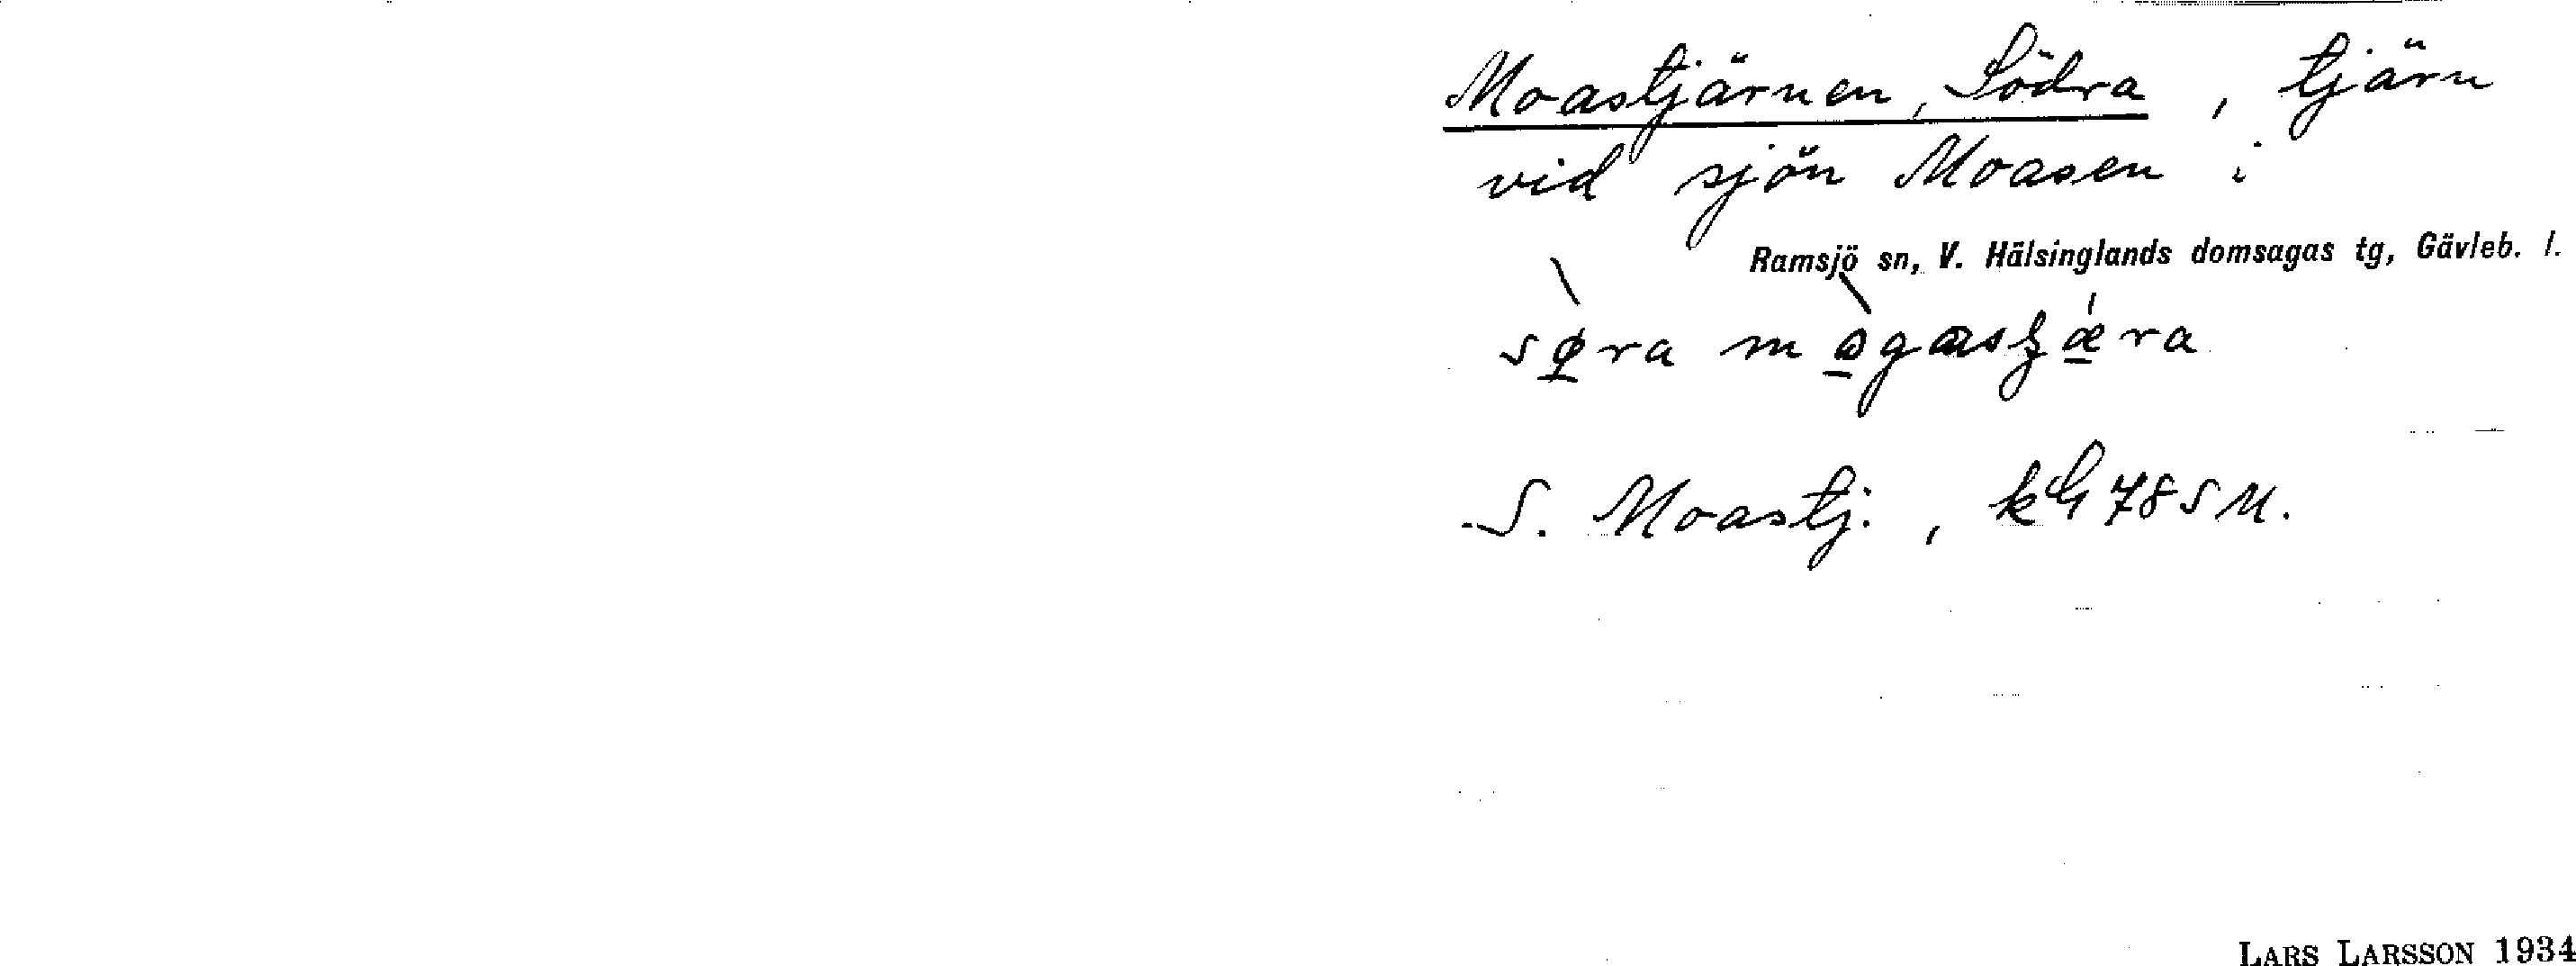 Moastjärnen, Södra, tjärn
vid sjön Moasen i
Ramsjö sn, V. Hälsinglands domsagas tg, Gävleb. l.
S. Moastj., kG 78 S M.
LARS LARSSON 1934